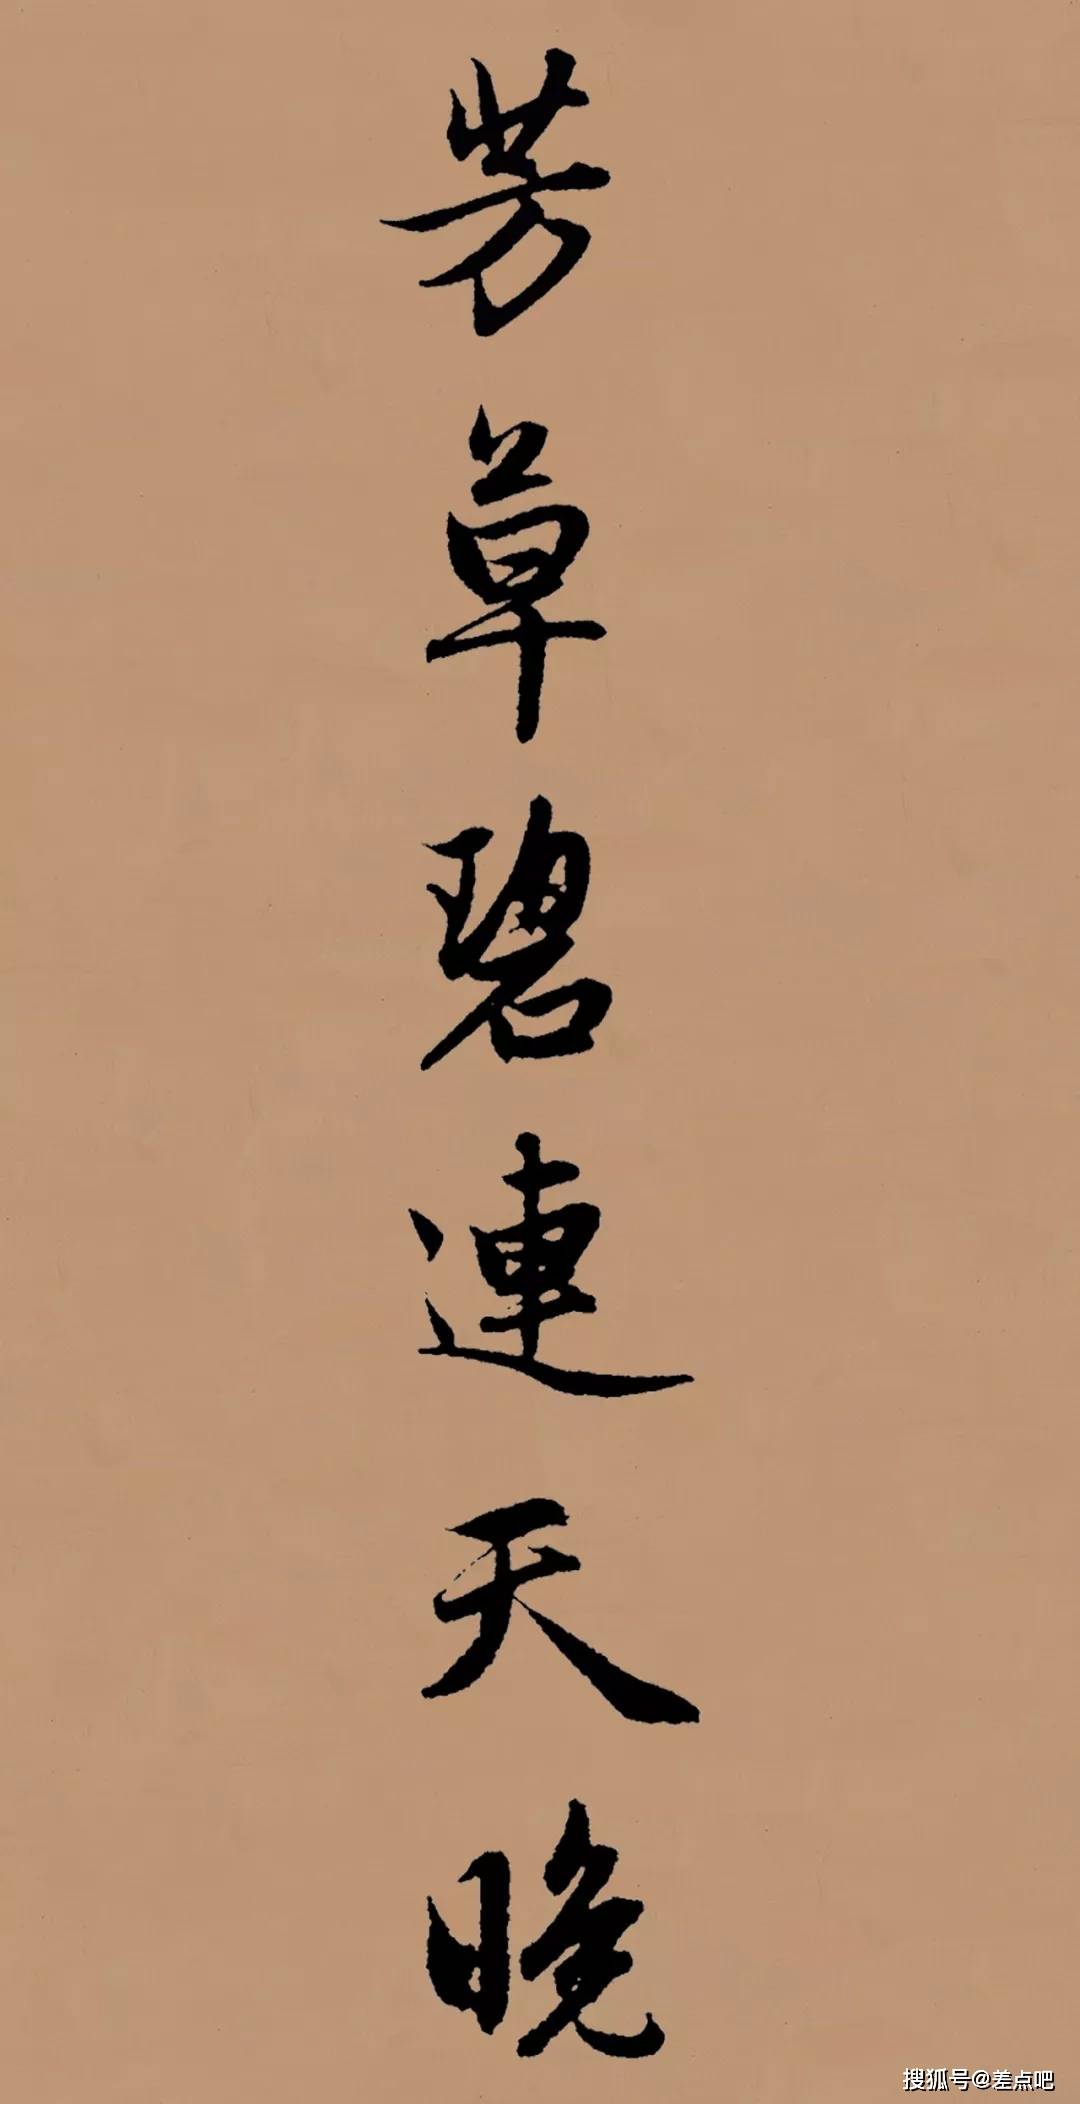 芳草碧連天晚
搜狐号@差点吧